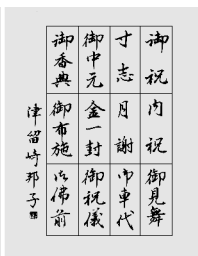 御祝
内祝
御見舞
寸志
月謝
御車代
御中元
金一封
御祝儀
御香典
御布施
御佛前
津留崎邦子